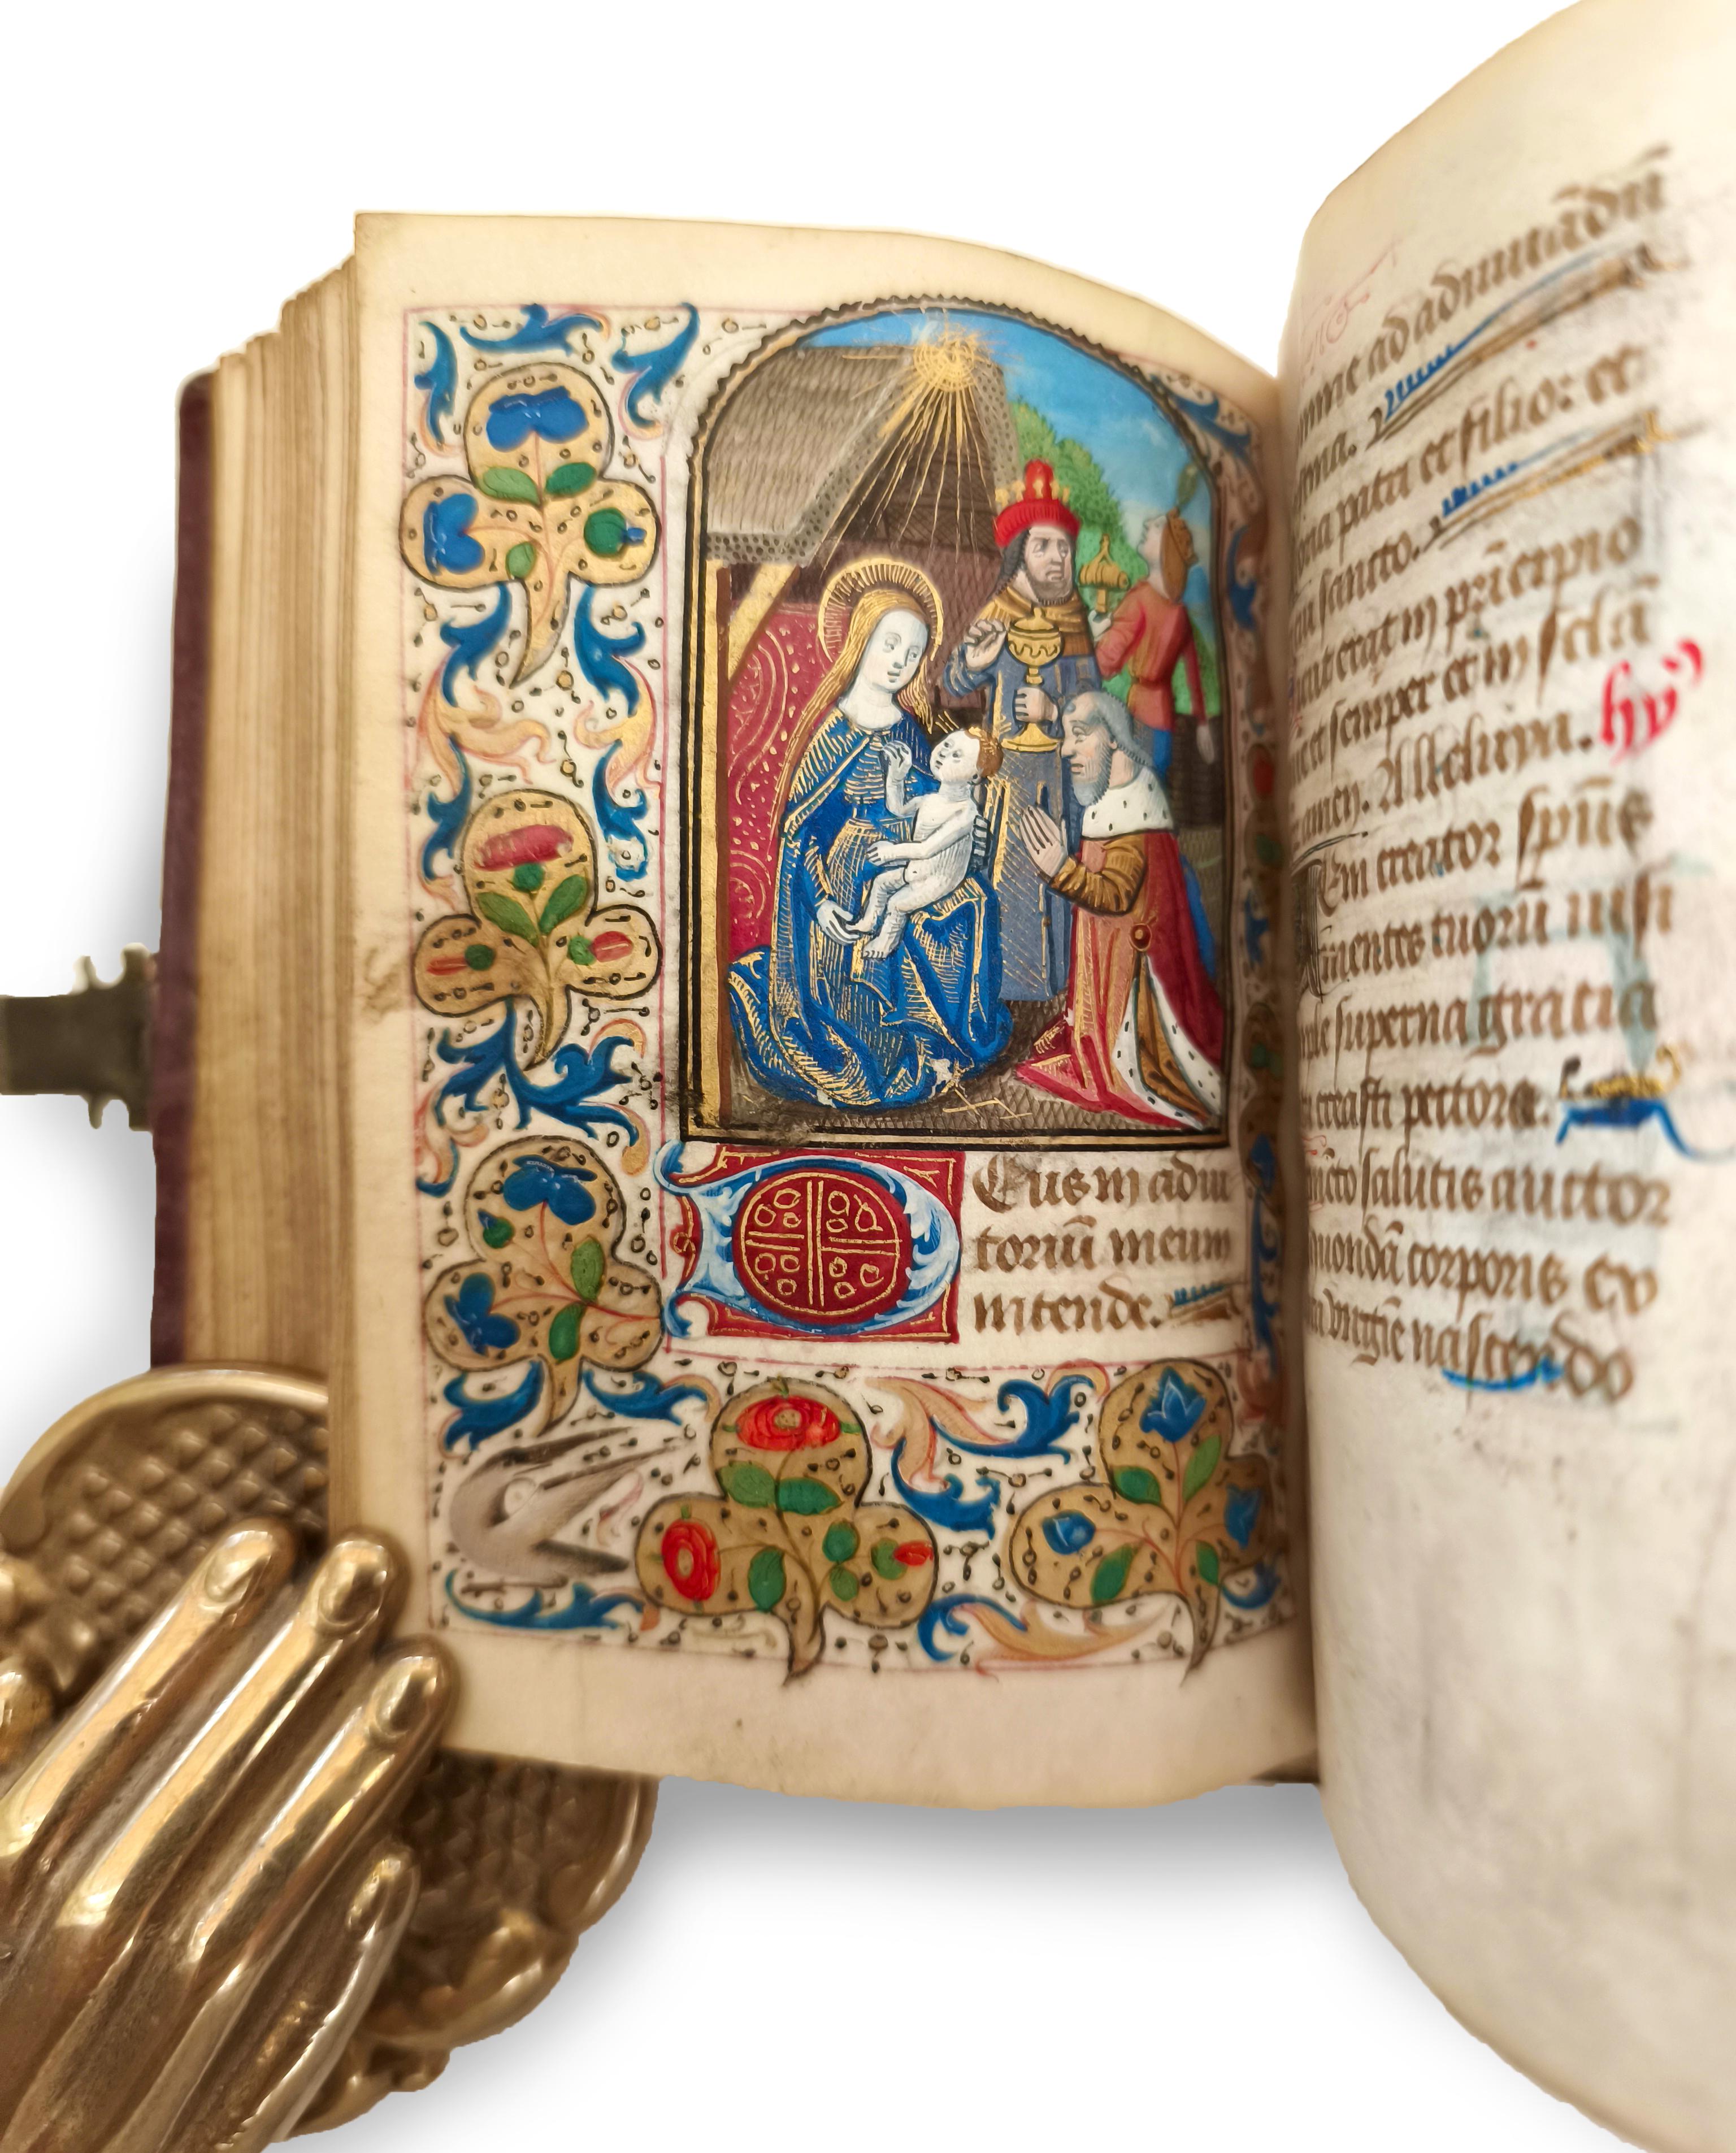 Deus in adiu
toriū meum
intende.
ad adiuuādū
patri et filio: et
sancto.
erat in prīcipio
et semper et in secla
amen. Alleluya. hy'
Eni creator spūs
mentes tuorū uisi
superna gratia
creasti pectora.
salutis auctor
quondā corporis ex
virgīe nascendo